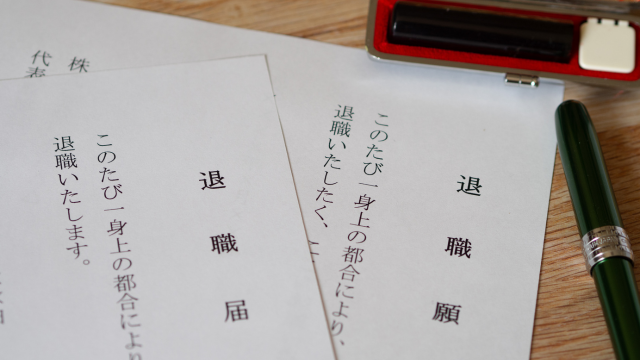 退職願
このたび一身上の都合により、
退職いたしたく、
株
代表
退職届
このたび一身上の都合により
退職いたします。